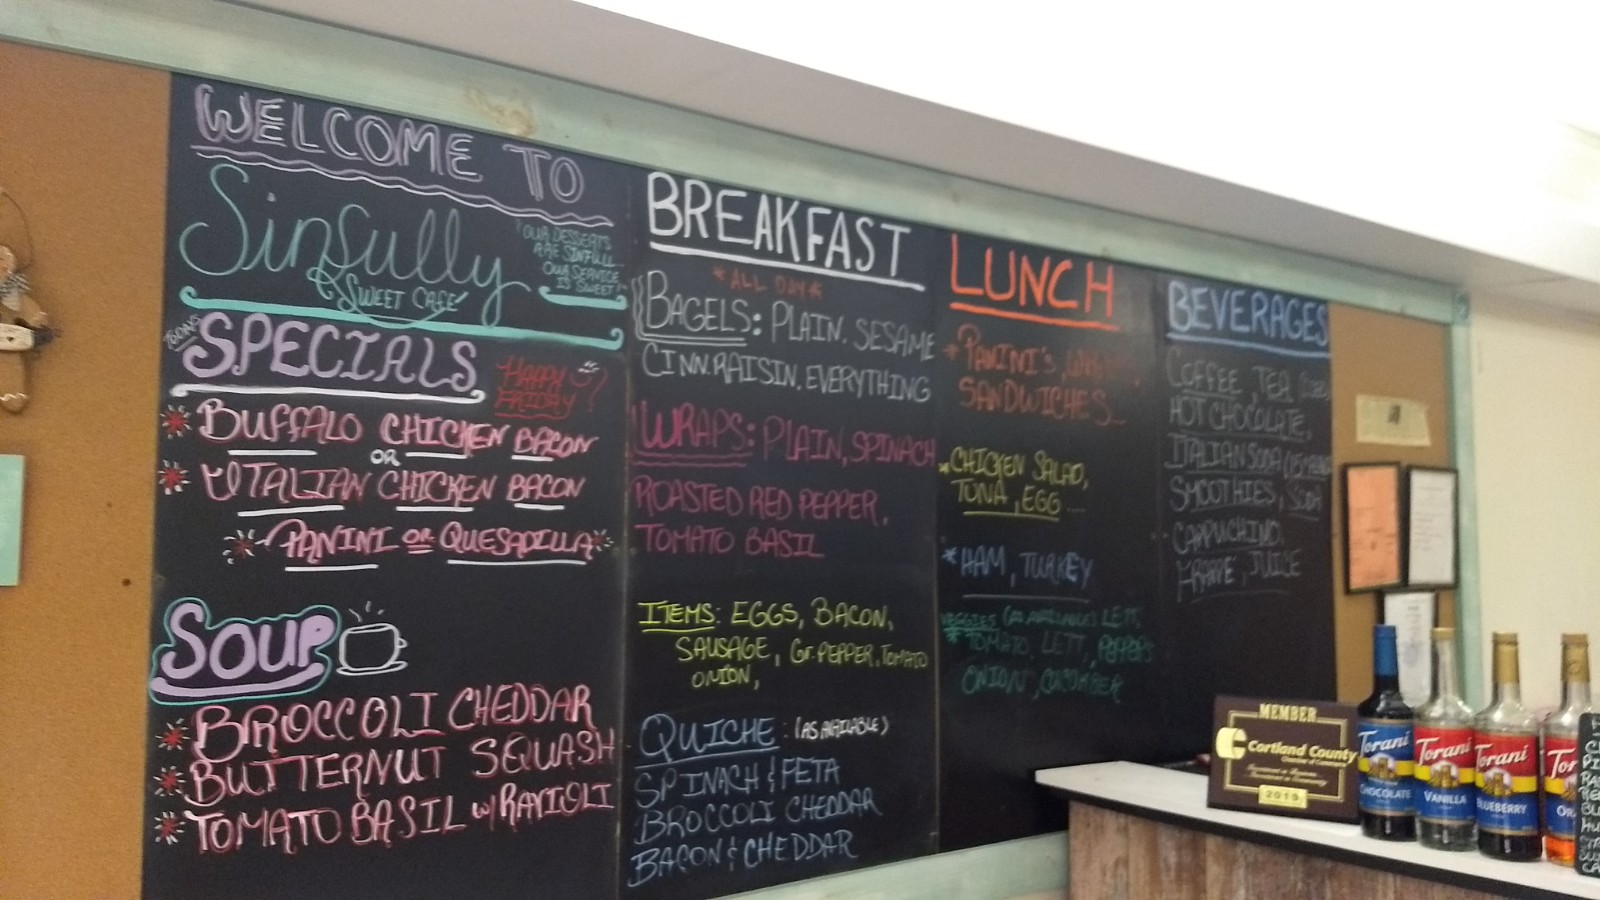 WELCOME TO
Sinfully
SWEET CAFE
"OUR DESSERTS
ARE SINFULL
OUR SERVICE
IS SWEET!"
TODAYS
SPECIALS
HAPPY
FRIDAY
* BUFFALO CHICKEN BACON
OR
* ITALIAN CHICKEN BACON
* PANINI OR QUESADILLA *
SOUP
* BROCCOLI CHEDDAR
* BUTTERNUT SQUASH
* TOMATO BASIL w/ RAVIOLI
BREAKFAST
*ALL DAY*
BAGELS: PLAIN. SESAME
CINN.RAISIN. EVERYTHING
WRAPS: PLAIN, SPINACH
ROASTED RED PEPPER,
TOMATO BASIL
ITEMS: EGGS, BACON,
SAUSAGE, Gr. PEPPER, TOMATO
ONION,
QUICHE: (AS AVAILABLE)
SPINACH & FETA
BROCCOLI CHEDDAR
BACON & CHEDDAR
LUNCH
* PANINI'S,
SANDWICHES...
* CHICKEN SALAD,
TUNA, EGG ...
* HAM, TURKEY
VEGGIES (AS AVAILABLE) LETT,
* TOMATO, LETT, PEPPERS
ONION, CUCUMBER
BEVERAGES
COFFEE, TEA
HOT CHOCOLATE,
ITALIAN SODA
SMOOTHIES, SODA
CAPPUCHINO,
FRAPPE, JUICE
MEMBER
Cortland County
Chamber of Commerce
2019
Torani
CHOCOLATE
Torani
VANILLA
Torani
BLUEBERRY
Tor
OR